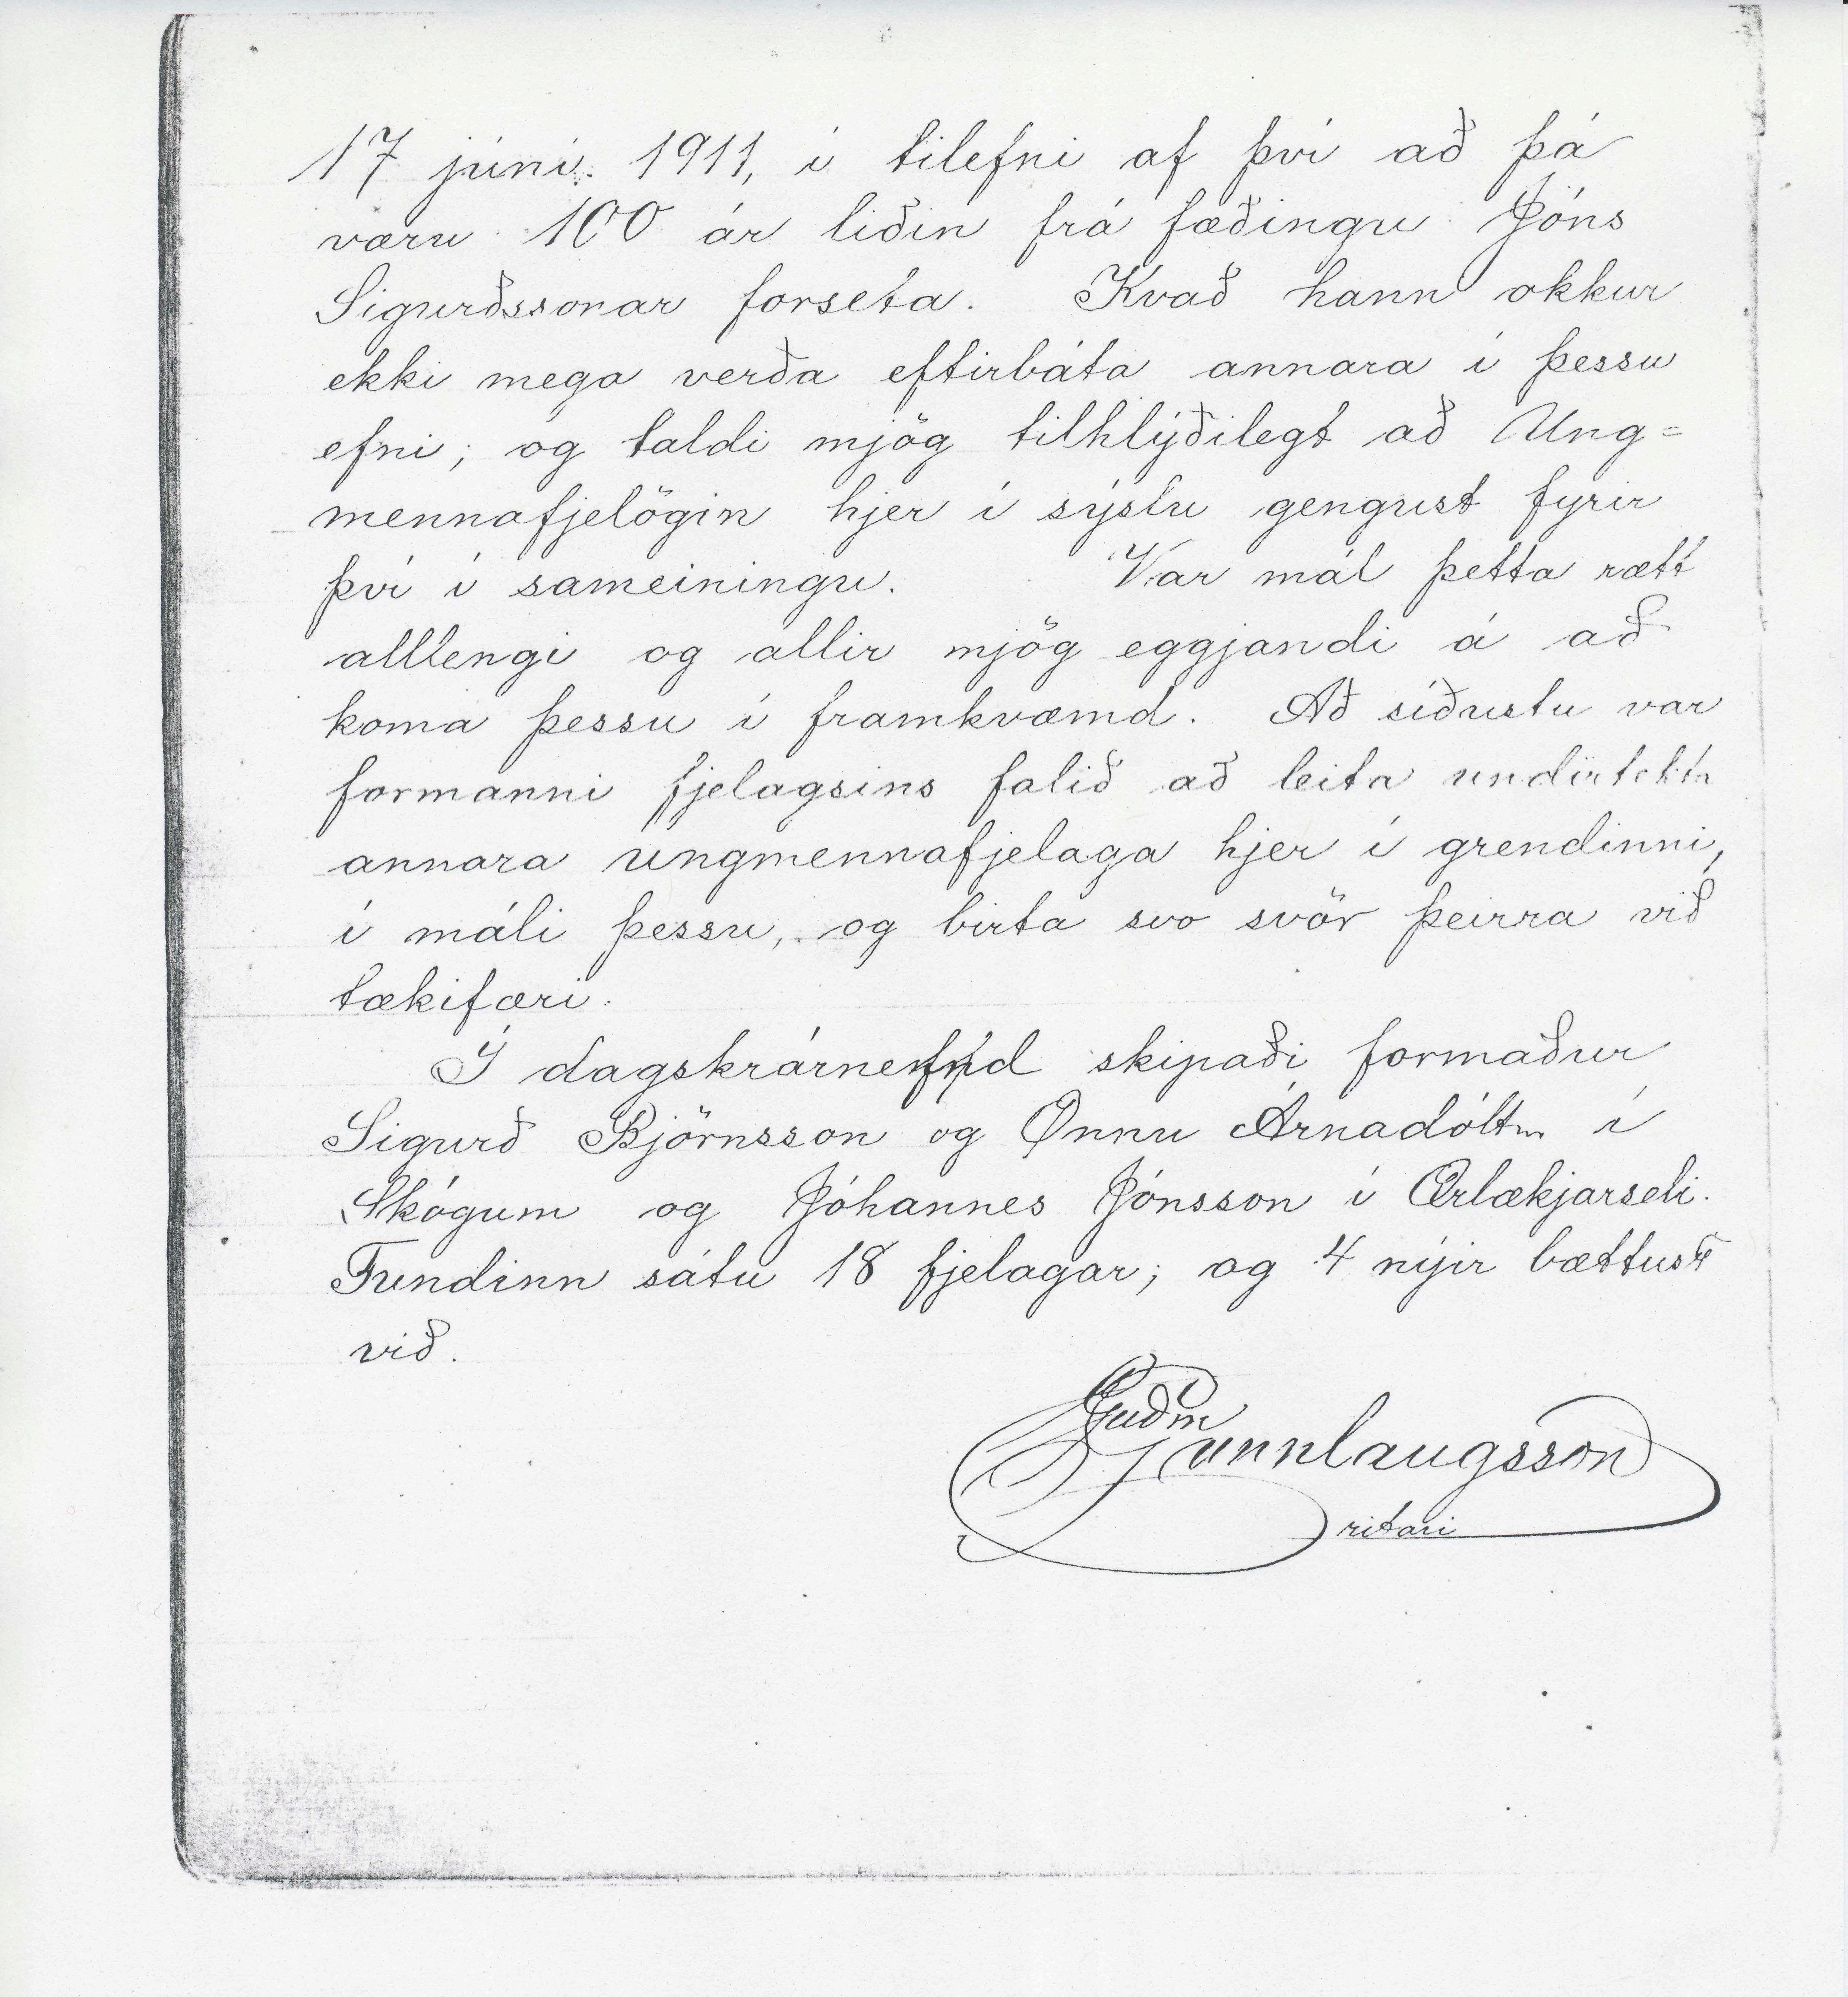 17 júni. 1911, í tilefni af því að þá
væru 100 ár liðin frá fæðingu Jóns
Sigurðssonar forseta. Kvað hann okkur
ekki mega verða eftirbáta annara í þessu
efni; og taldi mjög tilhlýðilegt að Ung=
mennafjelögin hjer í sýslu gengust fyrir
því í sameiningu. Var mál þetta rætt
alllengi og allir mjög eggjandi á að
koma þessu í framkvæmd. Að síðustu var
formanni fjelagsins falið að leita undirtekta
annara ungmennafjelaga hjer í grendinni,
í máli þessu, og birta svo svör þeirra við
tækifæri.
Í dagskrárnefnd skipaði formaður
Sigurð Björnsson og Önnu Árnadóttur í
Skógum og Jóhannes Jónsson í Ærlækjarseli.
Fundinn sátu 18 fjelagar; og 4 nýir bættust
við.
Guðm
Gunnlaugsson
ritari